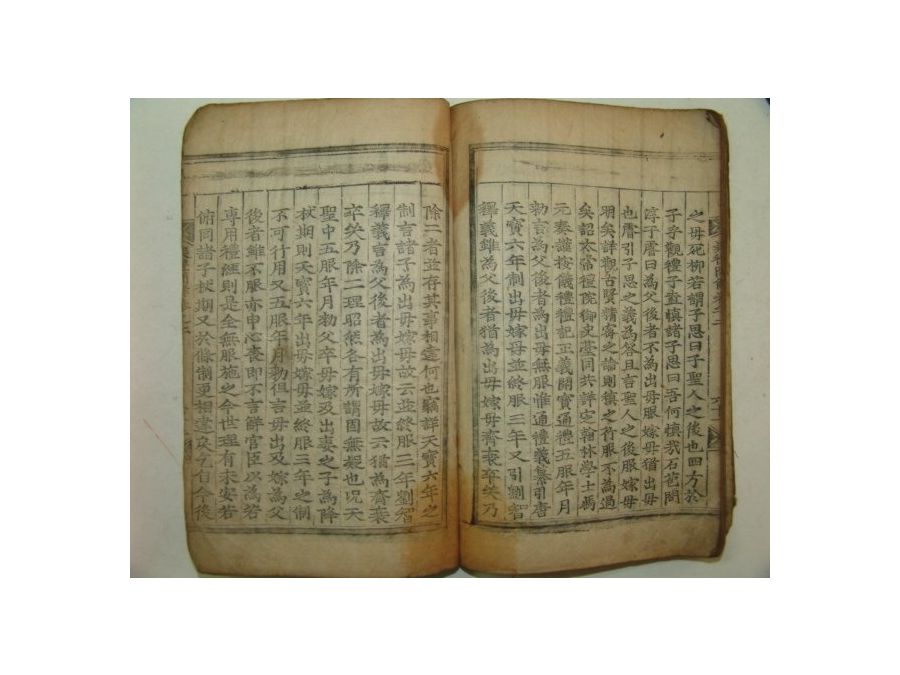 之母死柳若謂子思曰子聖人之後也四方於
子乎觀禮子盍慎諸子思曰吾何慎哉石苞問
淳于睿曰為父後者不為出母服嫁母猶出母
也睿引子思之義為答且言聖人之後服嫁母
明矣詳觀古賢精密之論則續之行服不為過
矣詔太常禮院御史臺同共詳定翰林學士馮
元奏謹按儀禮禮記正義開寶通禮五服年月
勑言為父後者為出母無服惟通禮義纂引唐
天寶六年制出母嫁母並終服三年又引劉智
釋義雖為父後者猶為出母嫁母齊衰卒哭乃
除二者並存其事相違何也竊詳天寶六年之
制言諸子為出母嫁母故云並終服三年劉智
釋義言為父後者為出母嫁母故云猶為齊衰
卒哭乃除二理昭然各有所謂固無疑也况天
聖中五服年月勑父卒母嫁及出妻之子為降
杖期則天寶六年出母嫁母並終服三年之制
不可行用又五服年月勑但言母出及嫁為父
後者雖不服亦申心喪即不言解官臣以為若
專用禮經則是全無服施之今世理有未安若
俯同諸子杖期又於條制更相違戾乞自今後